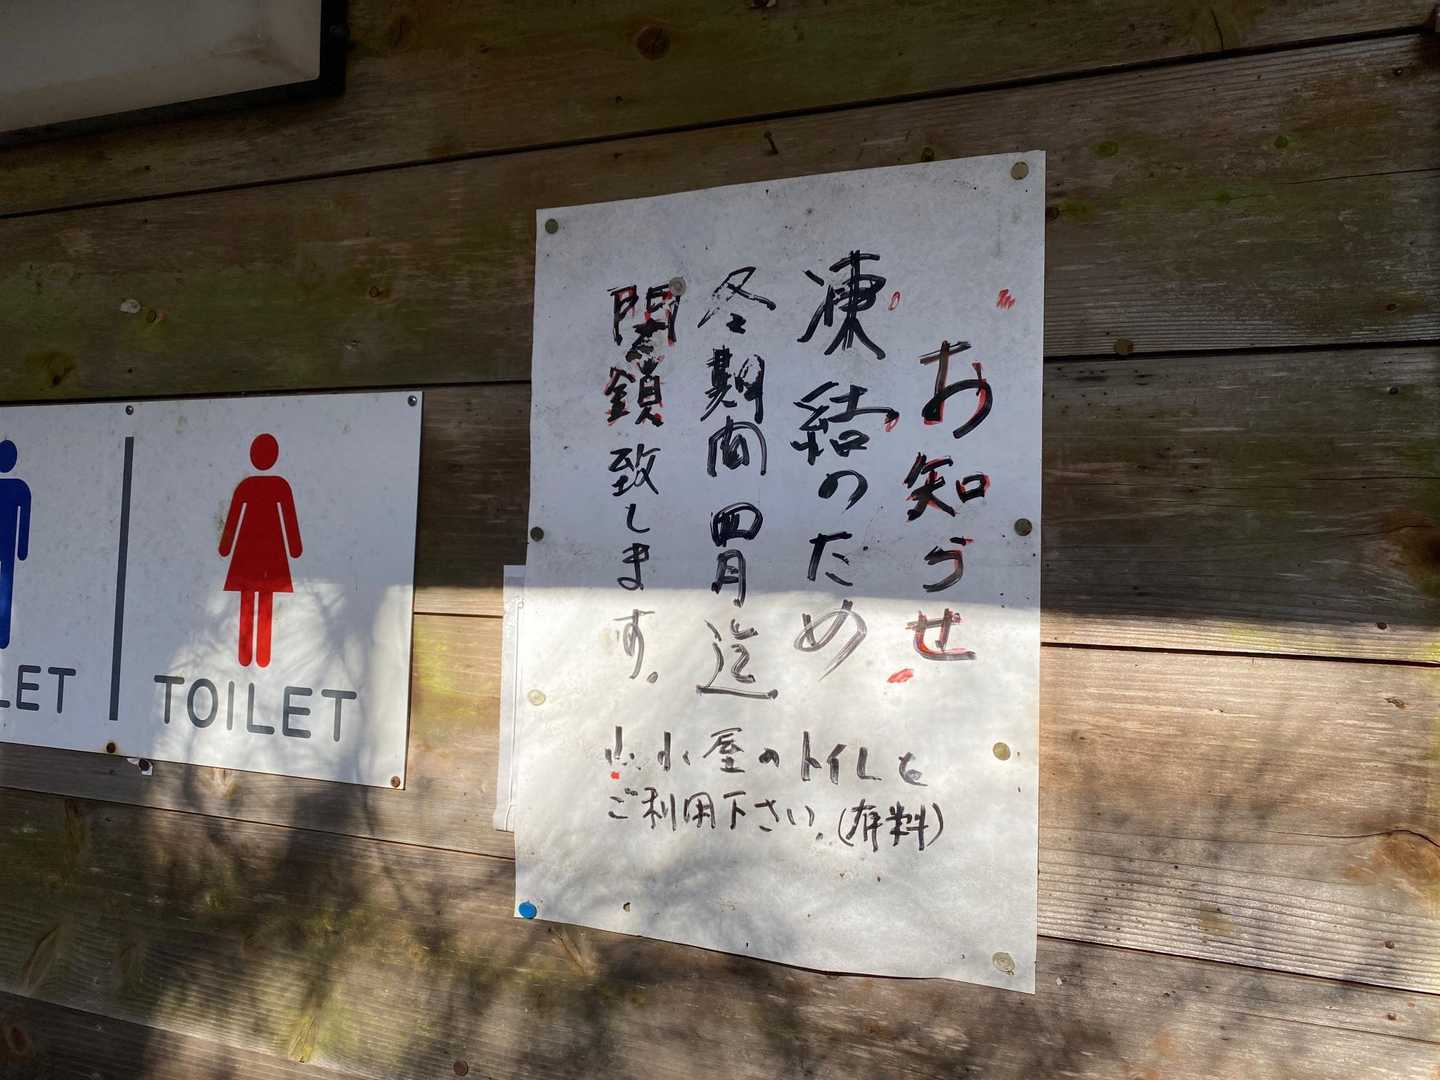 お知らせ
凍結のため
冬期間四月迄
閉鎖致します。
山小屋のトイレを
ご利用下さい。(有料)
LET
TOILET